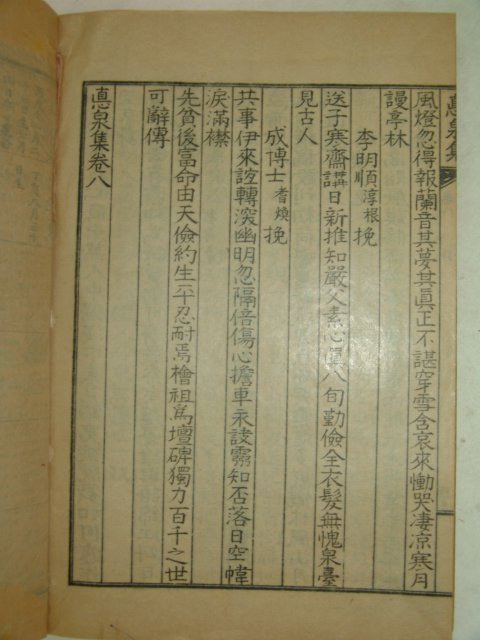 悳泉集
風燈忽得報蘭音其夢其眞正不諶穿雪含哀來慟哭凄凉寒月
謾亭林
李明順淳根挽
送子寒齋講日新推知嚴父素心眞八旬勤儉全衣髮無愧泉臺
見古人
成博士耆煥挽
共事伊來誼轉深幽明忽隔倍傷心擔車永諉霛知否落日空幃
淚滿襟
先貧後富命由天儉約生平忍耐焉檜祖馬壇碑獨力百千之世
可辭傳
悳泉集卷八